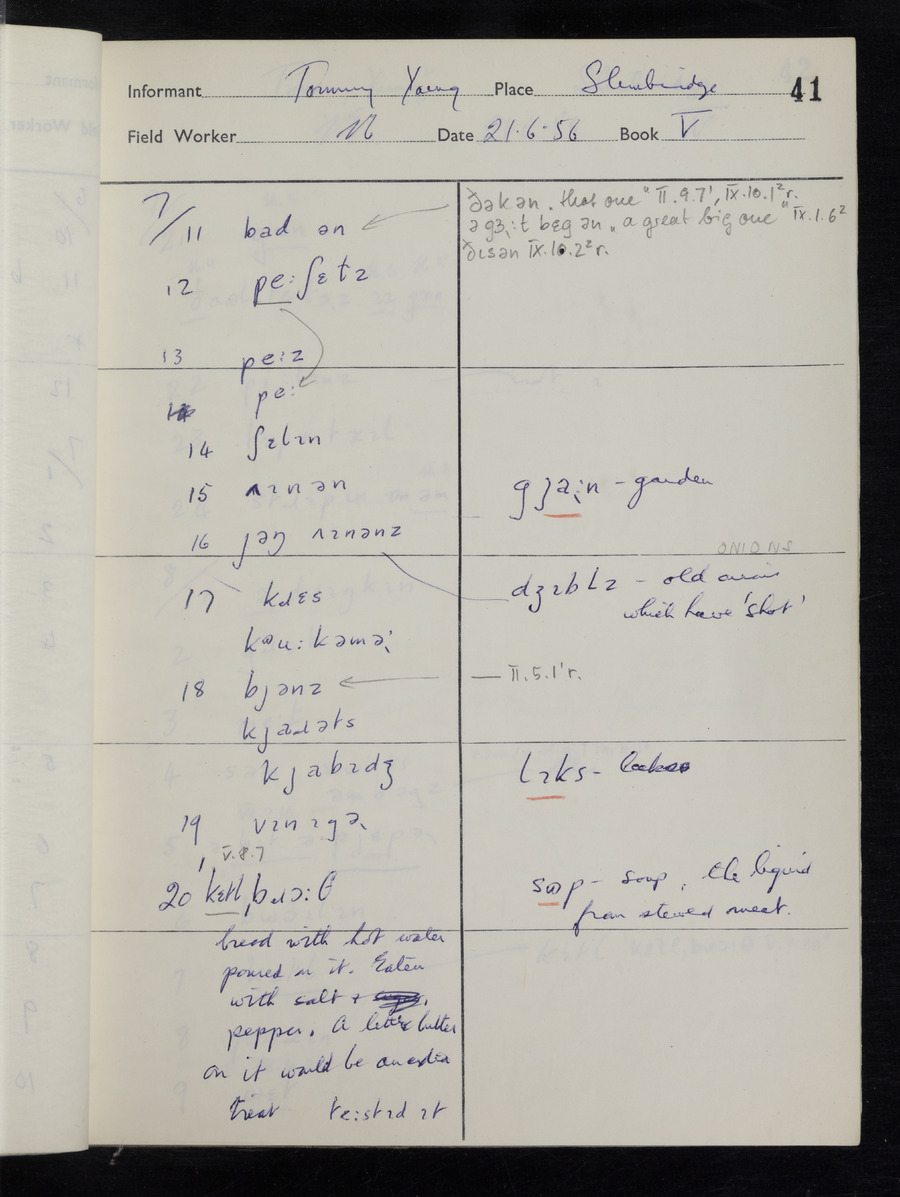 Informant Tommy Young Place Slimbridge 41
Field Worker Date 21·6·56 Book V
7/11 bad ən
ðəkən. that one" II.9.7', IX.10.1²r.
ə gɜːt bɛg ən „ a great big one" IX.1.6²
ðɪsən IX.10.2²r.
12 peːʃɛtz
13 peːz
peː
14 ʃɛlɪn
15 ʌɪnən
gjəːn - garden
16 jəŋ ʌɪnənz
ONIONS
17 kɹɛs
dʒɪblz - old
which have 'shot'
kəuːkəmə
18 bjənz
— II.5.1'r.
kjaɹəts
kjabɪdʒ
lɪks -
19 vɪnɪgə
V.8.7
20 kɛtl,bɹɔːθ
sɷp - soup, the liquid
from stewed meat.
bread with hot water
poured on it. Eaten
with salt +
pepper. A little butter
on it would be an extra
treat teːstɪd ɪt